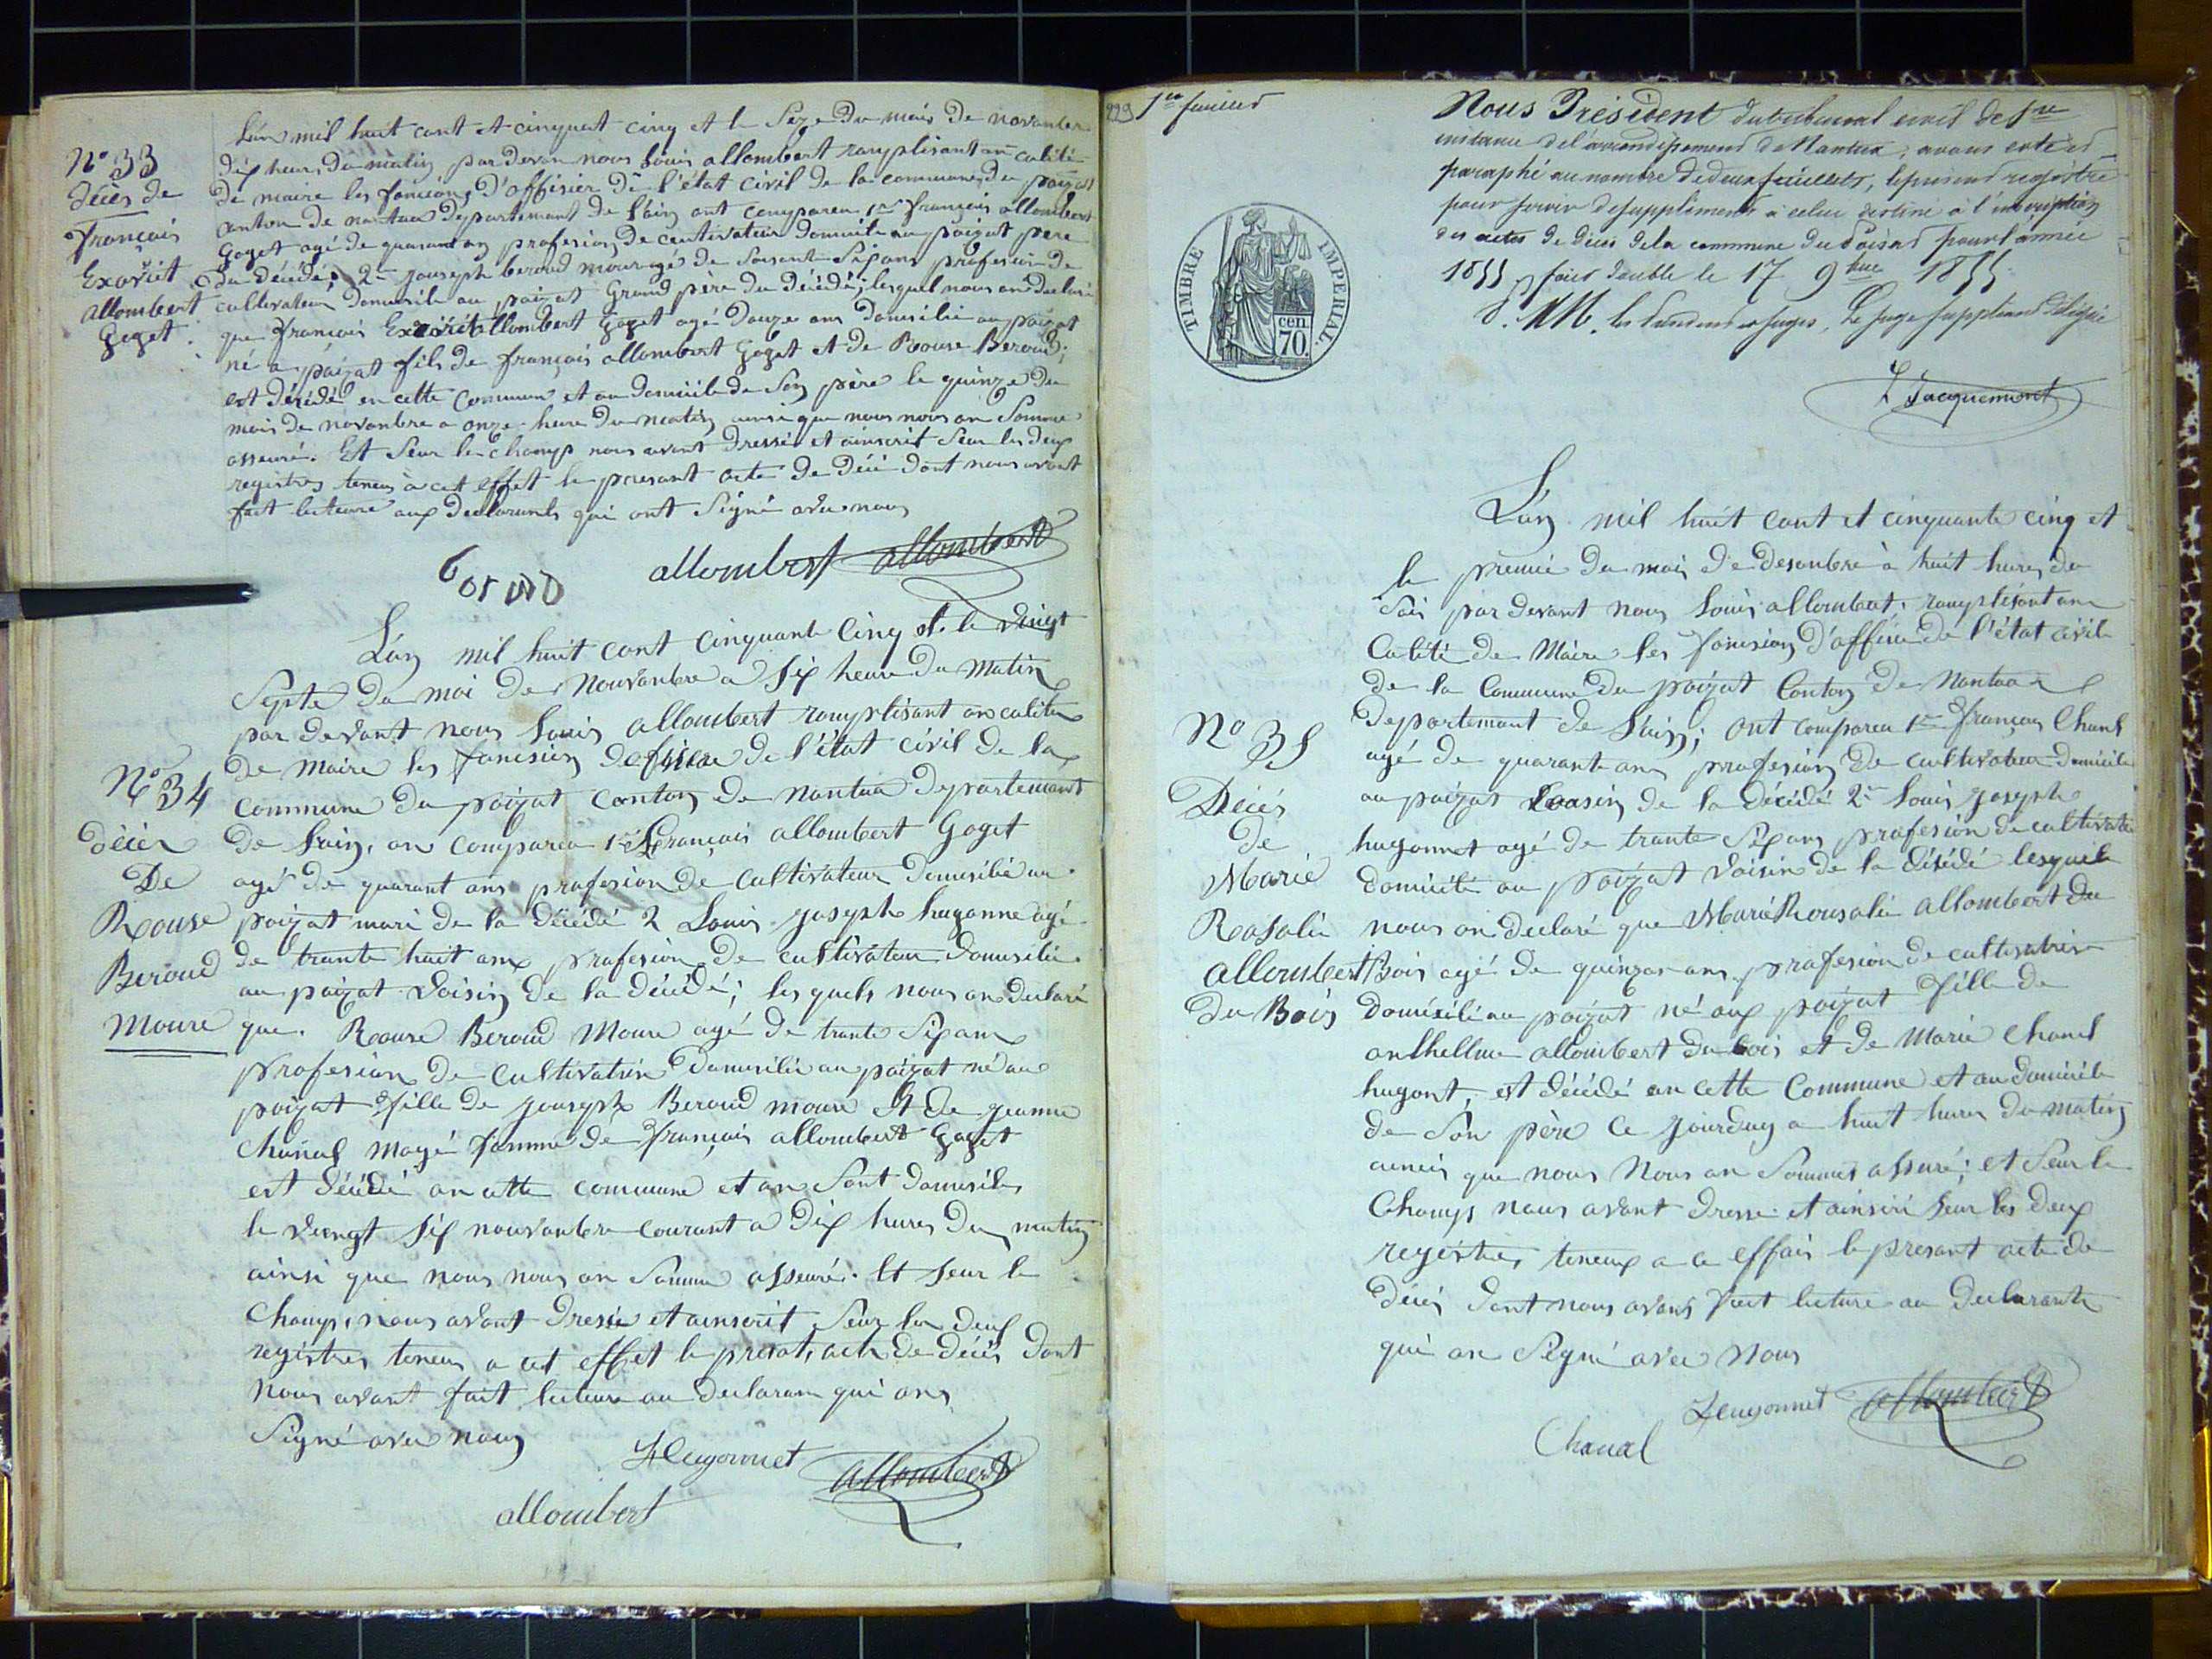 N° 33
décès de
François
Exavriet
allombert
Goget.
Lan mil huit cent et cinquant cinq et le Seze du mois de novanbre
dix heures du matin par devan nous Louis allombert ranplisant en calité
de maire les foncions d'offisier de l'état civil de la commune du poizat
canton de nantua departemant de l'ain ont conparu 1er françois allombert
Goget agé de quarant an profesion de cultivateur domicile au poizat père
du décédé; 2me Jouseph beroud moure agé de soisante Six ans profesion de
cultivateur domicile au poizat Grand père du décédé; lesquel nous on declaré
que François Exavriet allombert Goget agé Douze ans domicilié au poizat
né a poizat fils de françois allombert Goget et de Rouse Beroud;
est décédé en cette commune et au domicile de Son père le quinze du
mois de novanbre a onze heure du matin ainsi que nous nous on Somme
asseuré. Et Seur le champ nous avont dressé et ainscrit Seur les deux
registres teneus à cet effet le presant acte de déces dont nous avont
fait lecteure aux declarants qui ont Signé avec nous
beroud allombert allombert
N° 34
décès
De
Rouse
Beroud
Moure
L'an mil huit cent cinquante cinq et le vingt
Septe du moi de Nouvanbre a Six heure du Matin
par devant nous Louis allombert ranplisant en calité
de maire les foncision deficier de l'état civil de la
commune du poizat canton de nantua departemant
de Lain, on comparu 1er François allombert Goget
agé de quarant ans profesion de cultivateur domicilié au
poizat mari de la décédé 2 Louis Joseph hugonne agé
de trante huit ans profesion de cultivateur domicilié
au poizat voisin de la décédé; les quels nous on declaré
que. Rouse Beroud Moure agé de trante Six ans
profesion de cultivatrise domicilié au poizat né au
poizat fille de Jouseph Beroud moure et de Jeanne
Chanal Mayé famme de François allombert Goget
est décédé an cette commune et an Sont domicile
le veingt six nouvanbre courant a dix heures du matin
ainsi que nous nous on Somme asseuré. Et Seur le
champs, nous avont dressé et ainscrit Seur les deux
registres teneus a cet effet le presant, acte de décès dont
nous avont fait lecteure au declaran qui ons
Signé avec nous
Hugonnet allombert
allombert
229 1er feuillet
Nous Président du tribunal civil de 1re
instance de l'arrondissement de Nantua, avons coté et
paraphé au nombre de deux feuillets, le présent registre
pour servir de supplément à celui destiné à l'inscription
des actes de décès de la commune du Poisat pour l'année
1855 fait double le 17 9bre 1855
P. MM. les Président et Juges, Le Juge Suppléant délégué
Jacquemont
TIMBRE IMPERIAL.
cen.
70.
N° 35
Décès
de
Marie
Rosalie
allombert
du Bois
L'an mil huit cent et cinquante cinq et
le premié du mois de desanbre à huit heures du
Soir par devant nous Louis allombert ranplisant en
Calité de Maire les foncision d'officier de l'état civil
de la Commune du poizat Canton de Nantua
departemant de l'ain; ont comparu 1er françois Chanal
agé de quarante ans profesion de cultivateur domicilé
au poizat Cousin de la décédé 2me Louis Joseph
hugonnet agé de trante Six ans profesion de cultivateur
domicilé au poizat voisin de la décédé lesquels
nous on declaré que Marie Rousalie allombert du
Bois agé de quinzes ans profesion de cultivatrise
domicilié au poizat né aux poizat fille de
anthellme allombert du bois et de Marie Chanel
hugont, est décédé en cette Commune et au domicile
de Son père ce jourduy a huit heures du matin
ainsis que nous Nous on Sommes assuré; et Seur le
Champs nous avont dressé et ainscri seur les deux
registres teneux a ce effais le presant acte de
décés dont nous avons fait lecture au declarants
qui on Signé avec Nous
Hugonnet allombert
Chanal